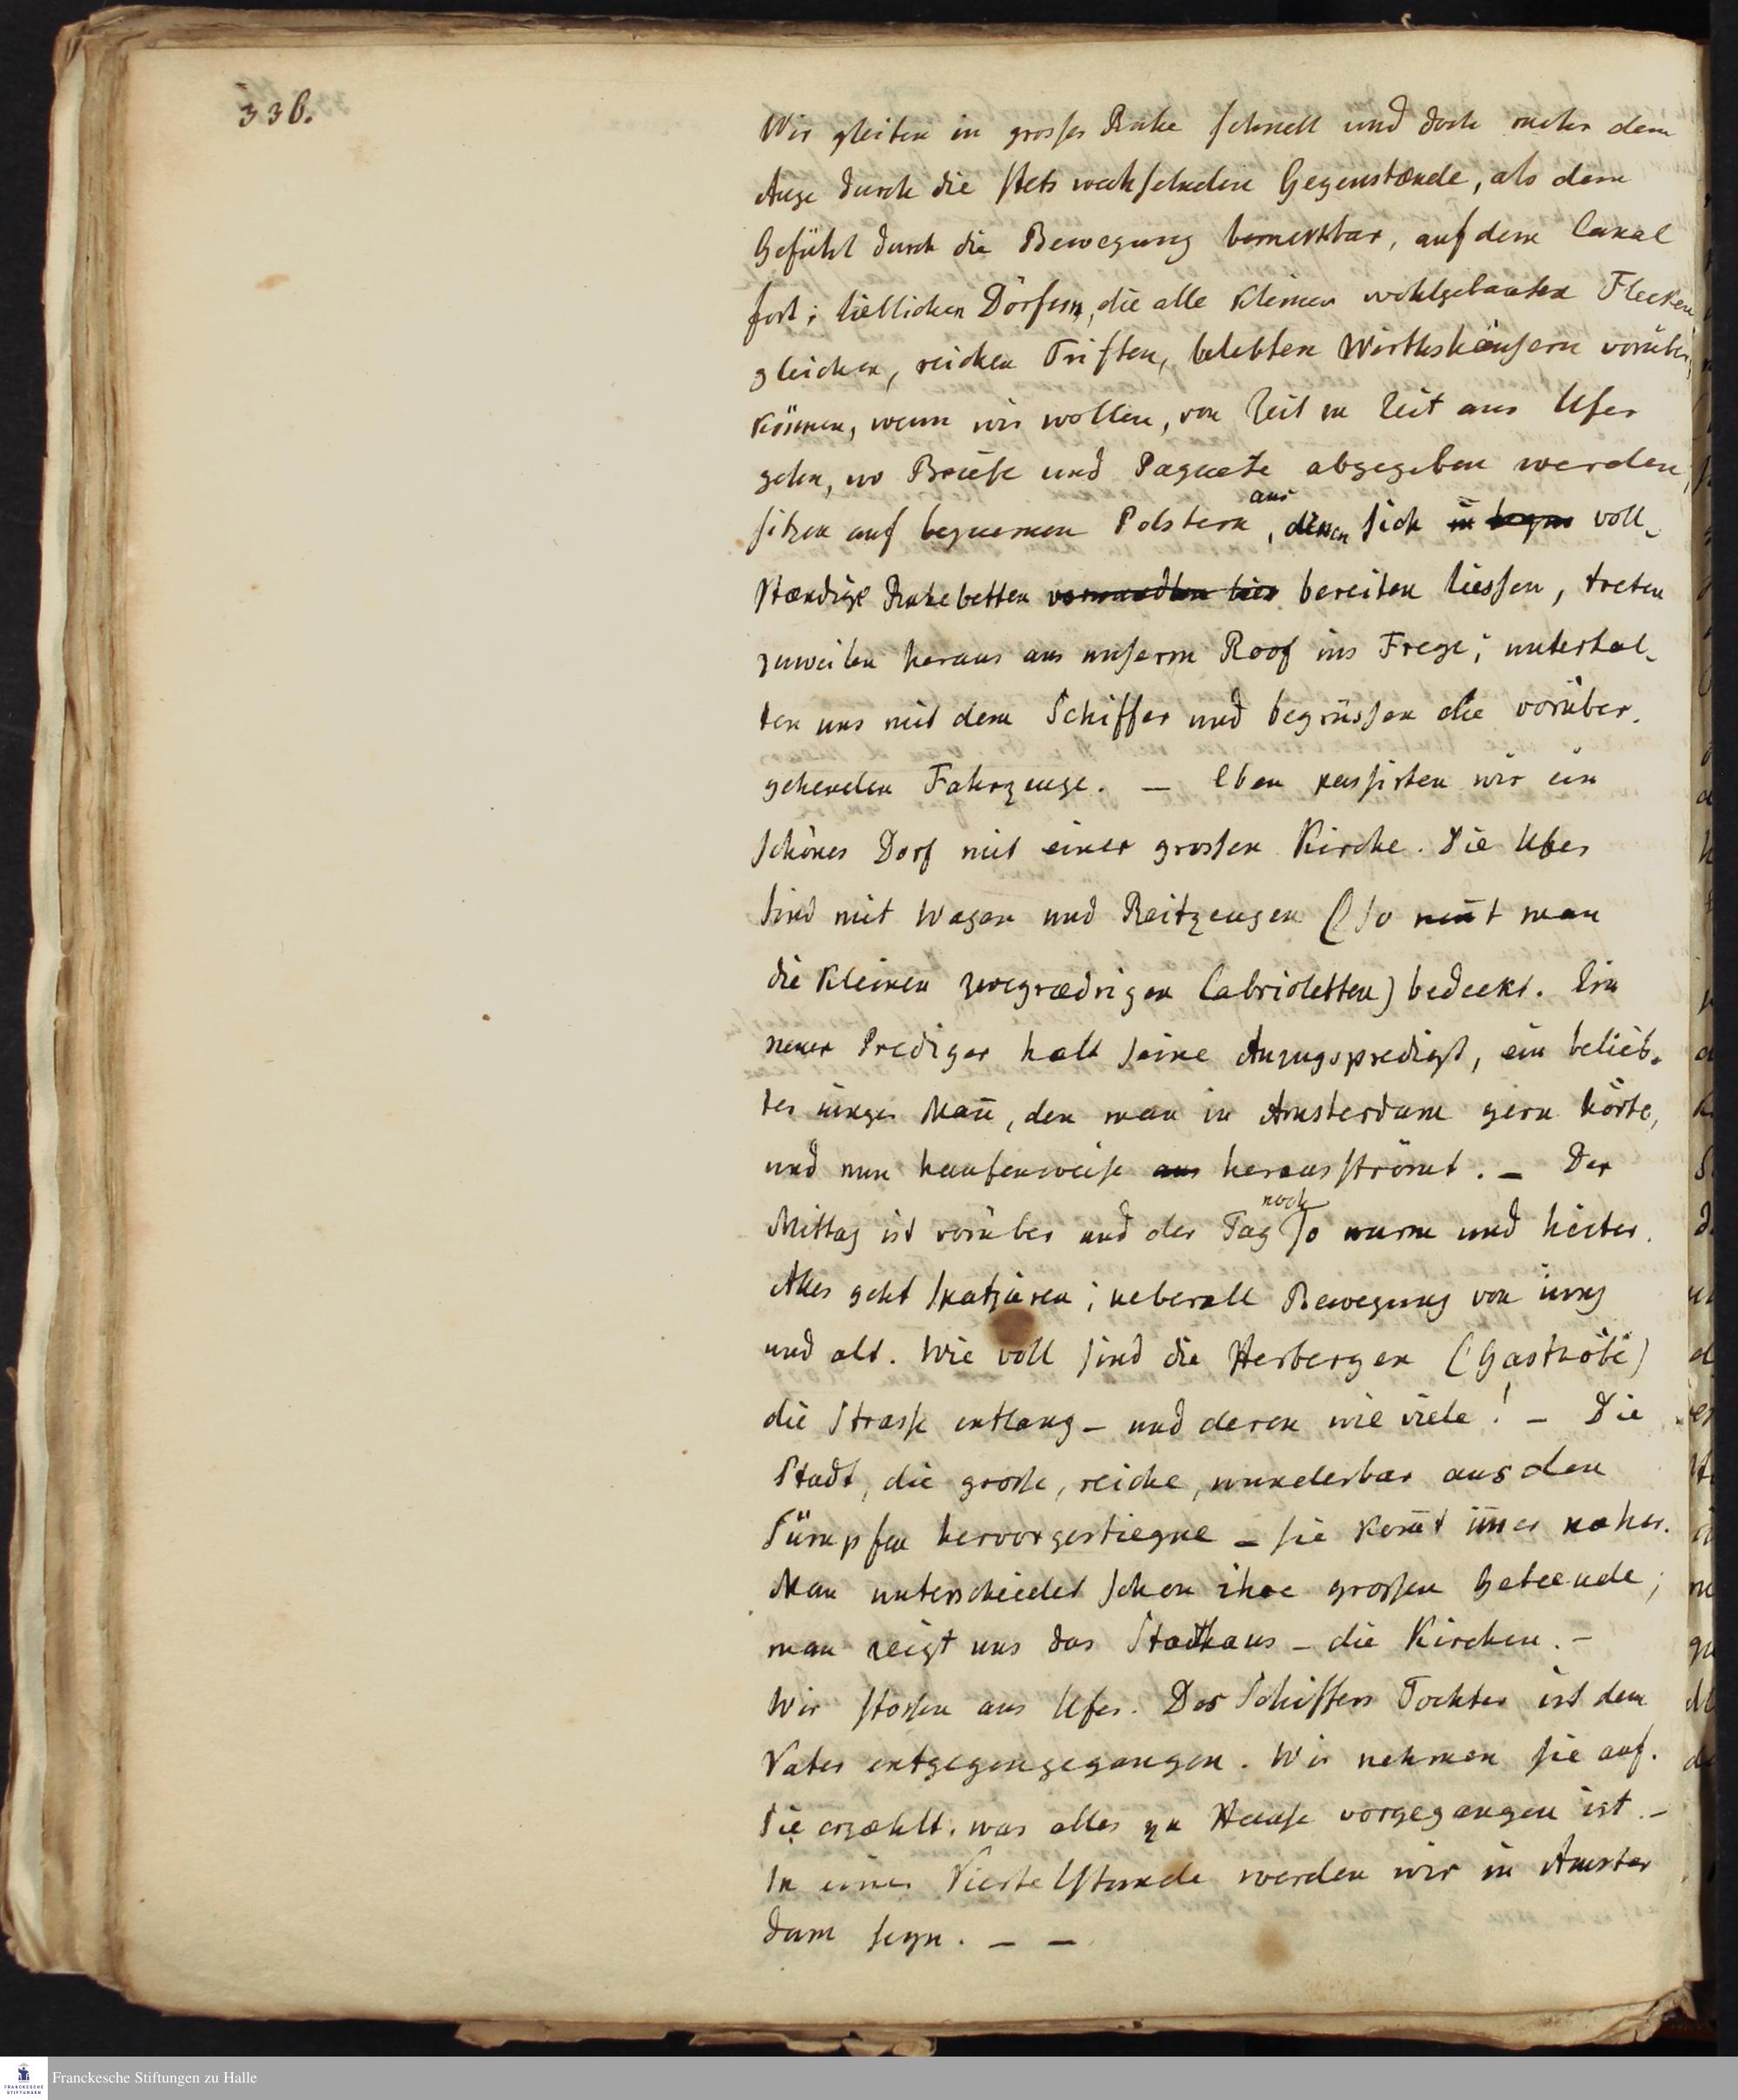 336.
Wir gleiten in grosser Ruhe schnell und doch mehr dem
Auge durch die stets wechselnden Gegenstænde, als dem
Gefühl durch die Bewegung bemerkbar, auf dem Canal
fort; lieblichen Dörfern, die alle kleinen wohlgebauten Flecken
gleichen, reichen Triften, belebten Wirthshäusern vorüber,
können, wenn wir wollen, von Zeit zu Zeit ans Ufer
gehen, wo Briefe und Paquete abgegeben werden,
sitzen auf bequemen Polstern, aus denen sich in voll-
stændige Ruhebetten bereiten liessen, treten
zuweilen heraus aus unserm Roof ins Freye; unterhal-
ten uns mit dem Schiffer und begrüssen die vorüber-
gehenden Fahrzeuge. — Eben passirten wir ein
schönes Dorf mit einer grossen Kirche. Die Ufer
sind mit Wagen und Reitzeugen (so neñt man
die kleinen zweyrædrigen Cabrioletten) bedeckt. Ein
neuer Prediger hælt seine Anzugspredigt, ein belieb-
ter iunger Mañ, den man in Amsterdam gern hörte,
und nun haufenweise aus herausströmt. — Der
Mittag ist vorüber und der Tag noch so warm und heiter.
Alles geht spatziren; ueberall Bewegung von iung
und alt. Wie voll sind die Herbergen (Gasthöfe)
die Strasse entlang — und deren wie viele! — Die
Stadt, die grosse, reiche, wunderbar aus den
Sümpfen hervorgestiegne — sie kom̄t im̄er næher.
Man unterscheidet schon ihre grossen Gebæude;
man zeigt uns das Stadthaus — die Kirchen. —
Wir stossen ans Ufer. Des Schiffers Tochter ist dem
Vater entgegengegangen. Wir nehmen sie auf.
Sie erzæhlt, was alles zu Hause vorgegangen ist. —
In einer Viertelstunde werden wir in Amster
dam seyn. — —
Franckesche Stiftungen zu Halle
FRANCKESCHE
STIFTUNGEN